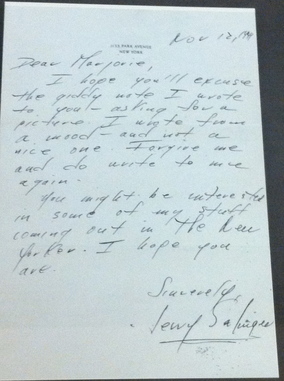 1133 PARK AVENUE
NEW YORK
Nov 12, '41
Dear Marjorie,
I hope you'll excuse
the giddy note I wrote
to you - asking for a
picture. I wrote from
a mood - and not a
nice one. Forgive me
and do write to me
again.
You might be interested
in some of my stuff
coming out in the New
Yorker. I hope you
are.
Sincerely,
Jerry Salinger